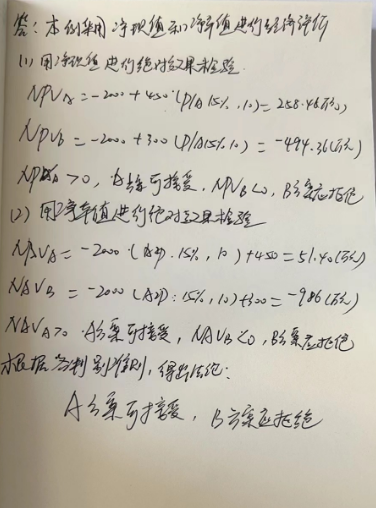 答:本例采用净现值和净年值进行经济评价
(1) 用净现值进行绝对效果检验
NPVA = -2000 + 450·(P/A 15%, 10) = 258.46(万元)
NPVB = -2000 + 300 (P/A 15% 10) = -494.36(万元)
NPVA > 0, A方案可接受, NPVB < 0, B方案应拒绝
(2) 用净年值进行绝对效果检验
NAVA = -2000·(A/P. 15%, 10) + 450 = 51.40(万元)
NAVB = -2000 (A/P: 15%, 10) + 300 = -986(万元)
NAVA > 0 A方案可接受, NAVB < 0, B方案应拒绝
根据各判别准则, 得出结论:
A方案可接受, B方案应拒绝